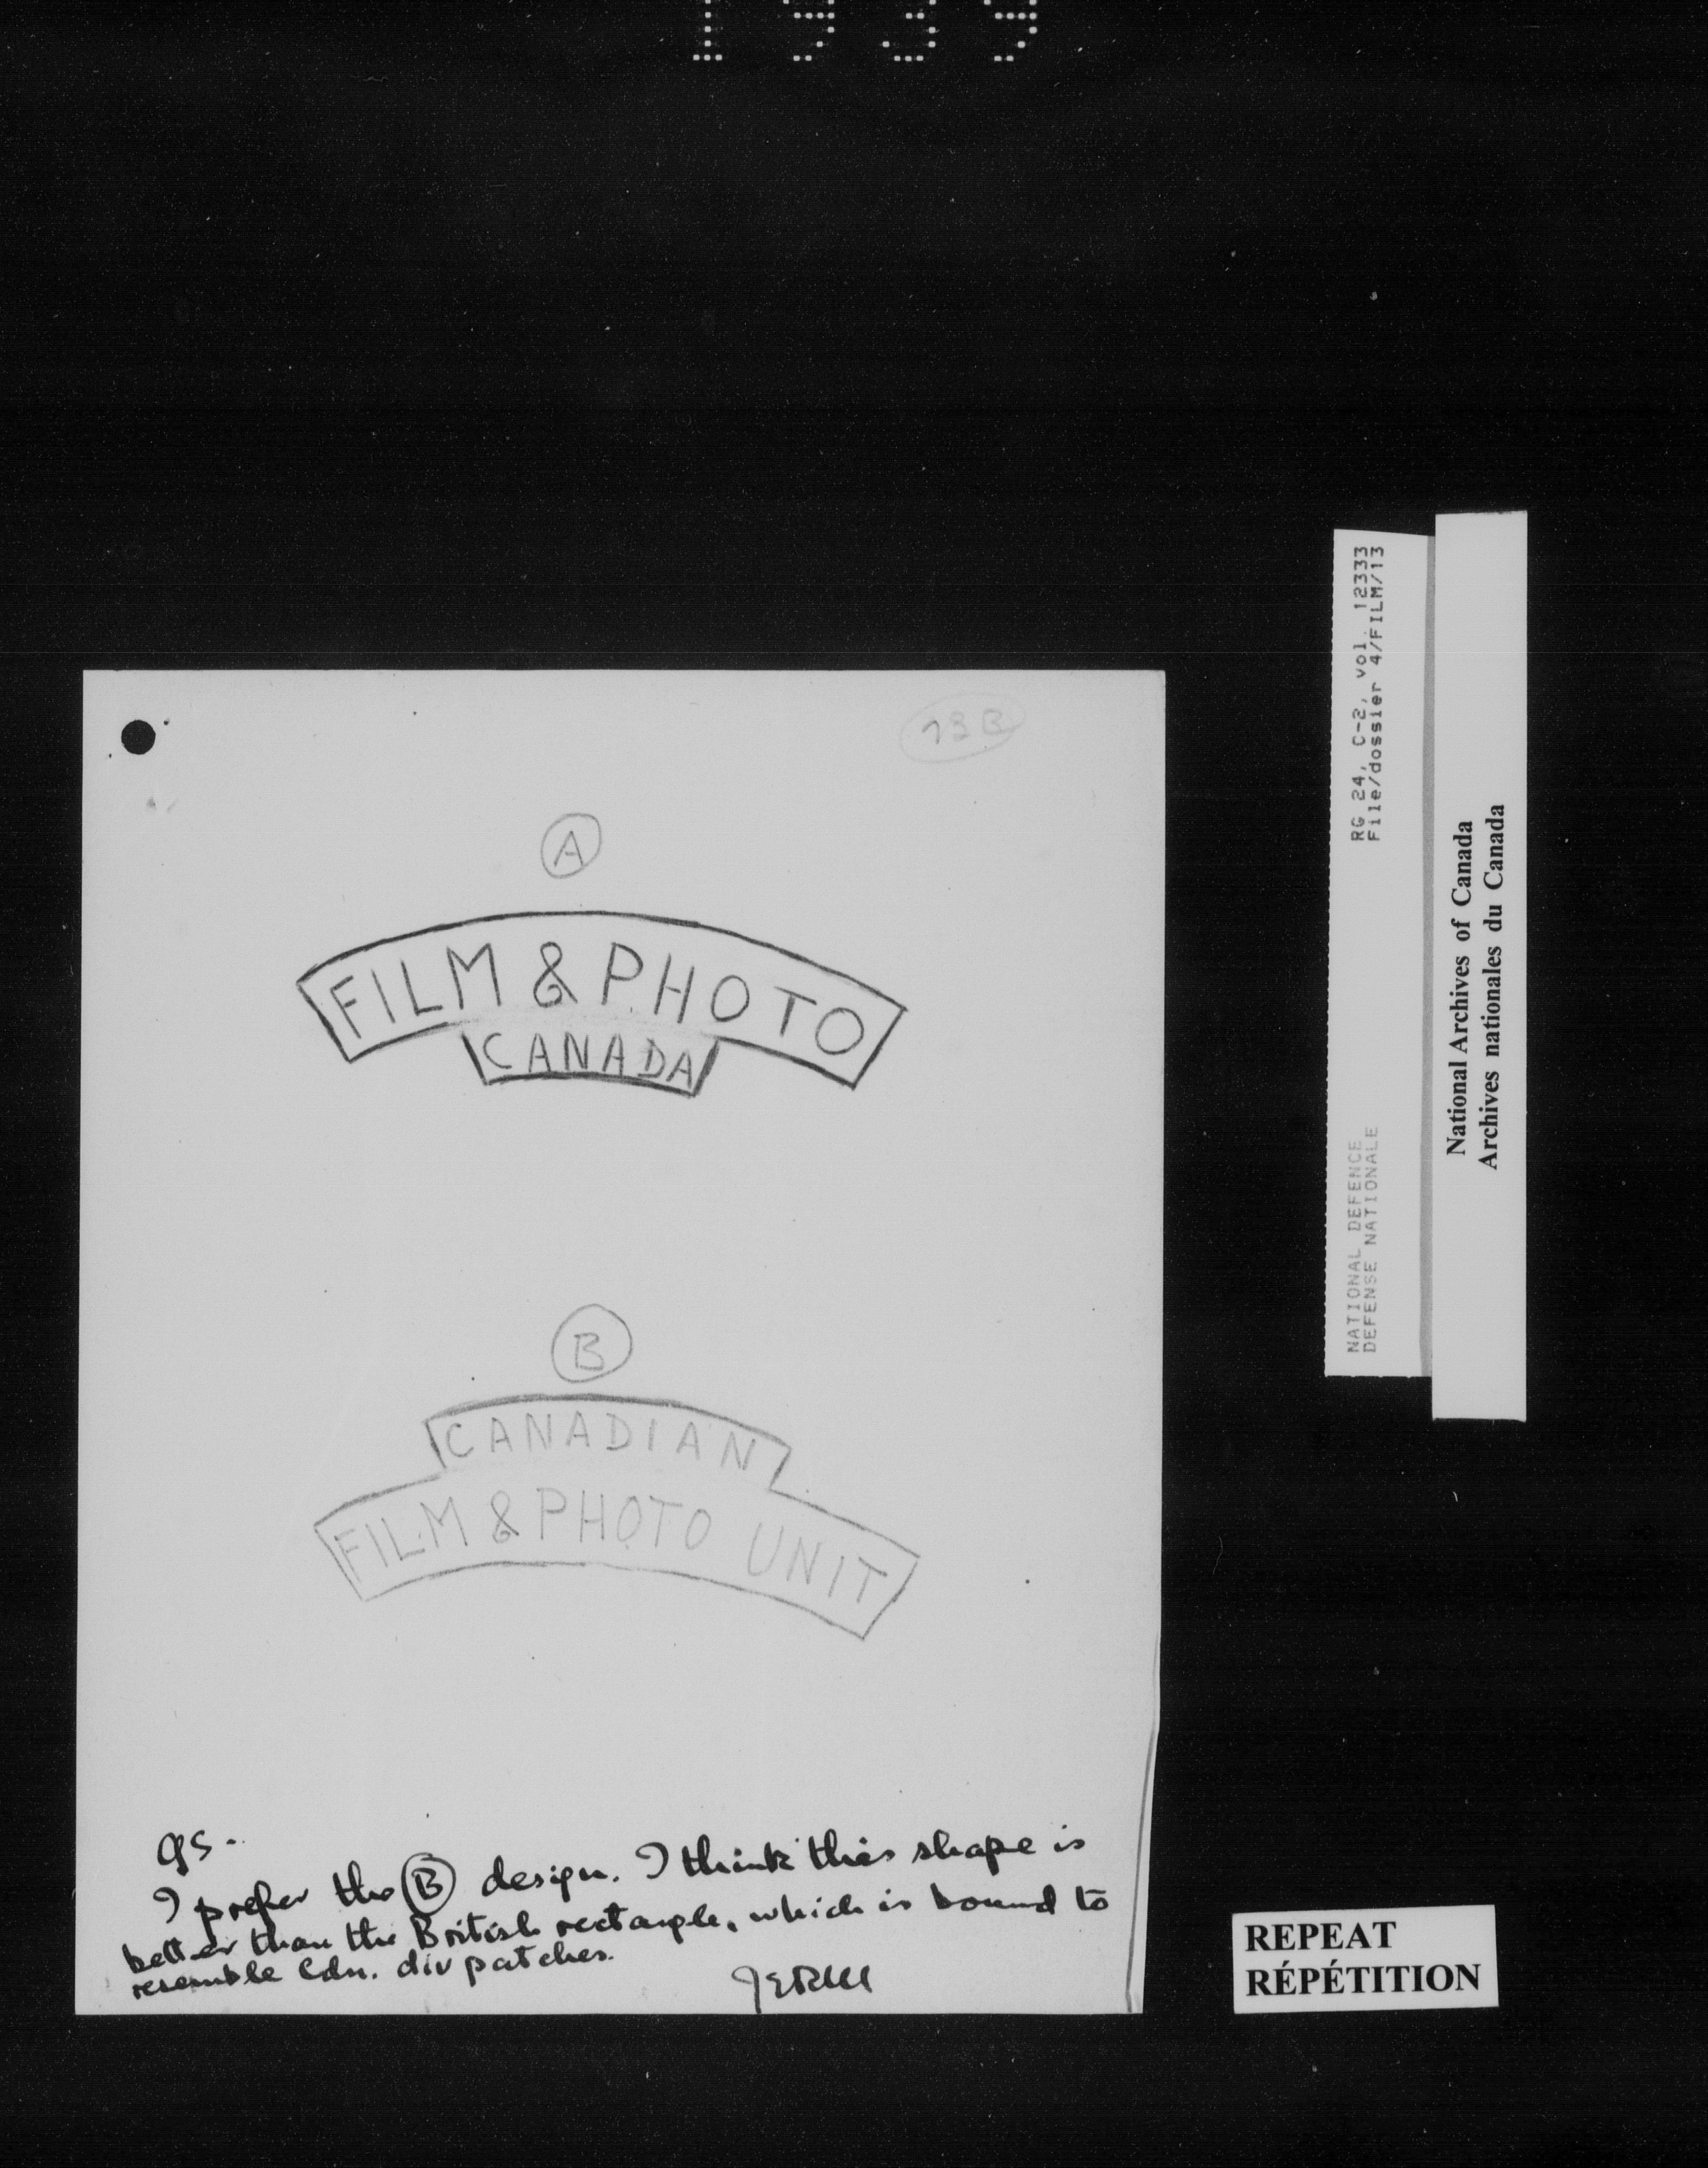 1939
73B
A
FILM & PHOTO
CANADA
B
CANADIAN
FILM & PHOTO UNIT
GS-
I prefer the B design. I think this shape is
better than the British rectangle, which is bound to
resemble Cdn. div patches.
RG 24, C-2, vol. 12333
File/dossier 4/FILM/13
NATIONAL DEFENCE
DEFENSE NATIONALE
National Archives of Canada
Archives nationales du Canada
REPEAT
RÉPÉTITION